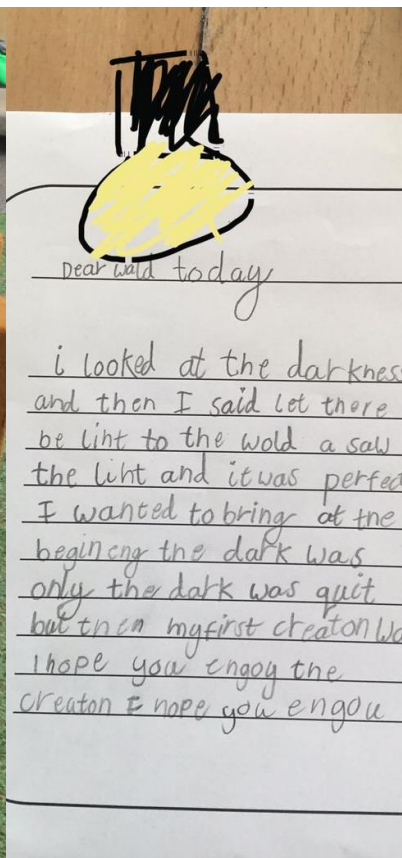 Dear wald today
i looked at the darkness
and then I said let there
be liht to the wold a saw
the liht and it was perfec
I wanted to bring at the
begineng the dark was
only the dark was quit
but then my first creaton wa
I hope you engoy the
creaton I hope you engou